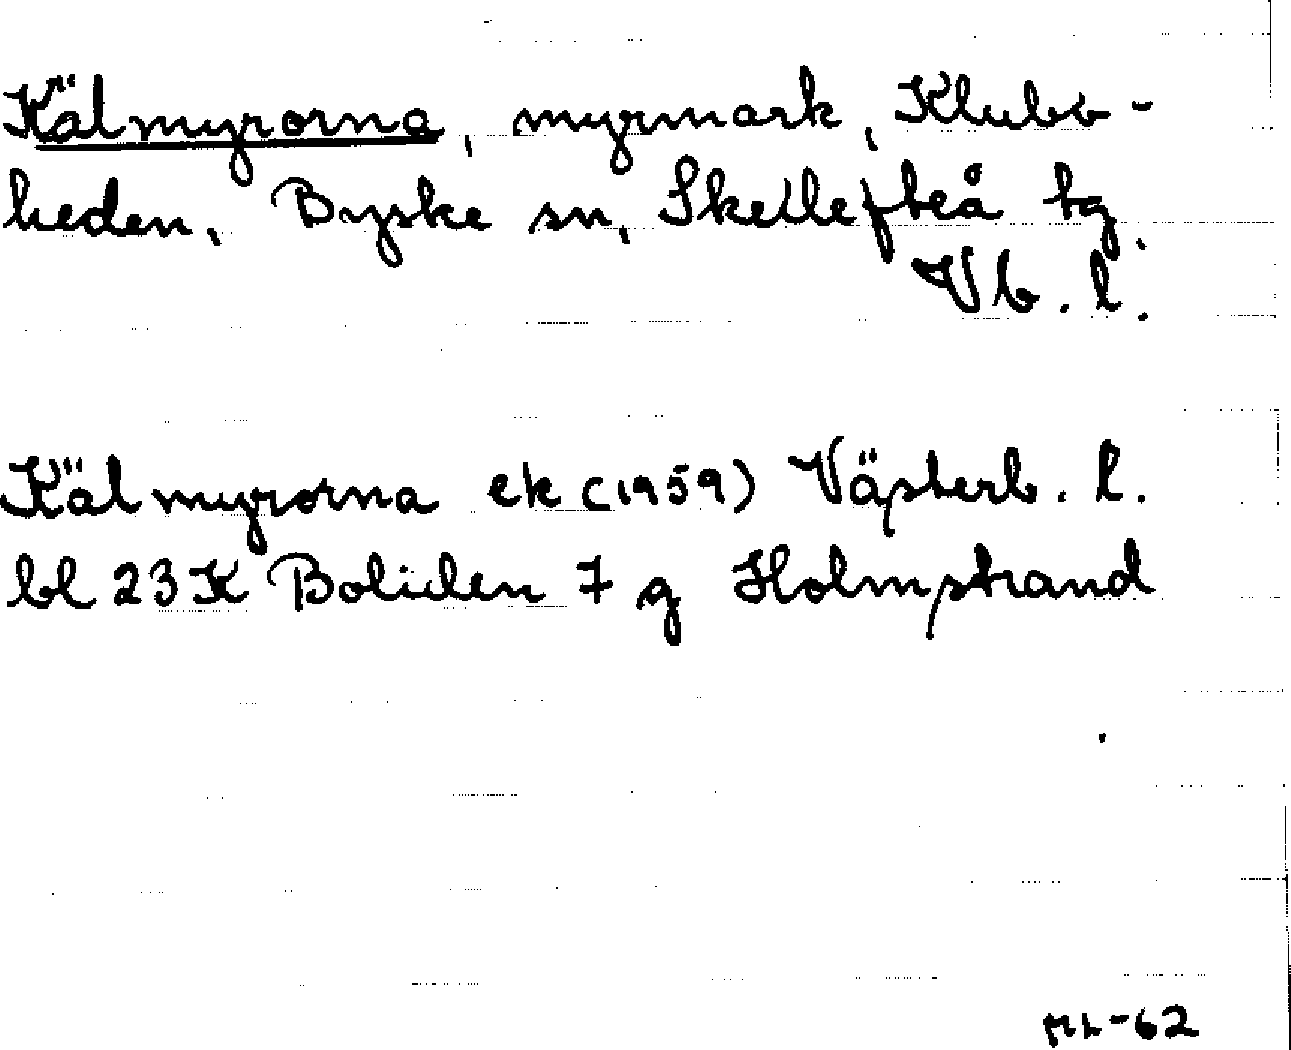 Kälmyrorna, myrmark, Klubb-
heden, Byske sn, Skellefteå tg,
Vb. l.
Kälmyrorna ek (1959) Västerb. l.
bl 23K Boliden 7 g Holmstrand
ML-62